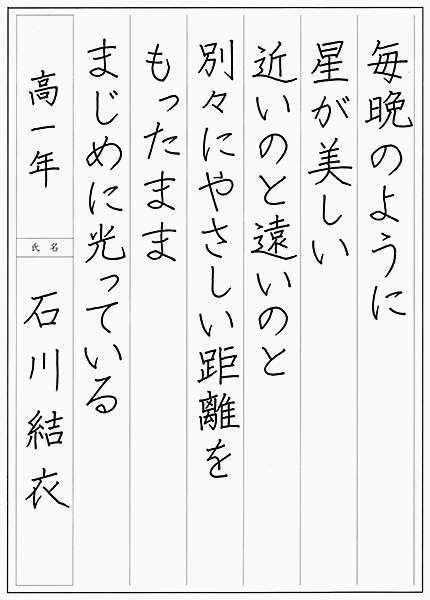 毎晩のように
星が美しい
近いのと遠いのと
別々にやさしい距離を
もったまま
まじめに光っている
高一年
氏名
石川結衣